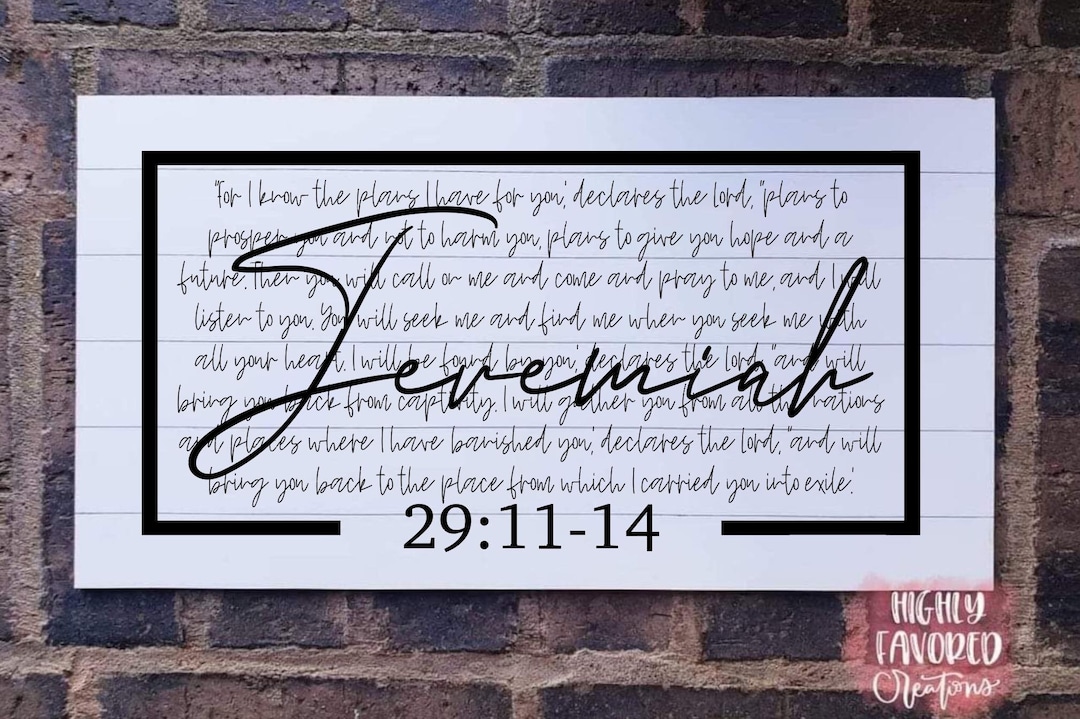 "For I know the plans I have for you,' declares the Lord, "plans to
prosper you and not to harm you, plans to give you hope and a
future. Then you will call on me and come and pray to me, and I will
listen to you. You will seek me and find me when you seek me with
all your heart. I will be found by you,' declares the Lord, "and will
bring you back from captivity. I will gather you from all the nations
and places where I have banished you,' declares the Lord, "and will
bring you back to the place from which I carried you into exile.'
Jeremiah
29:11-14
HIGHLY
FAVORED
Creations